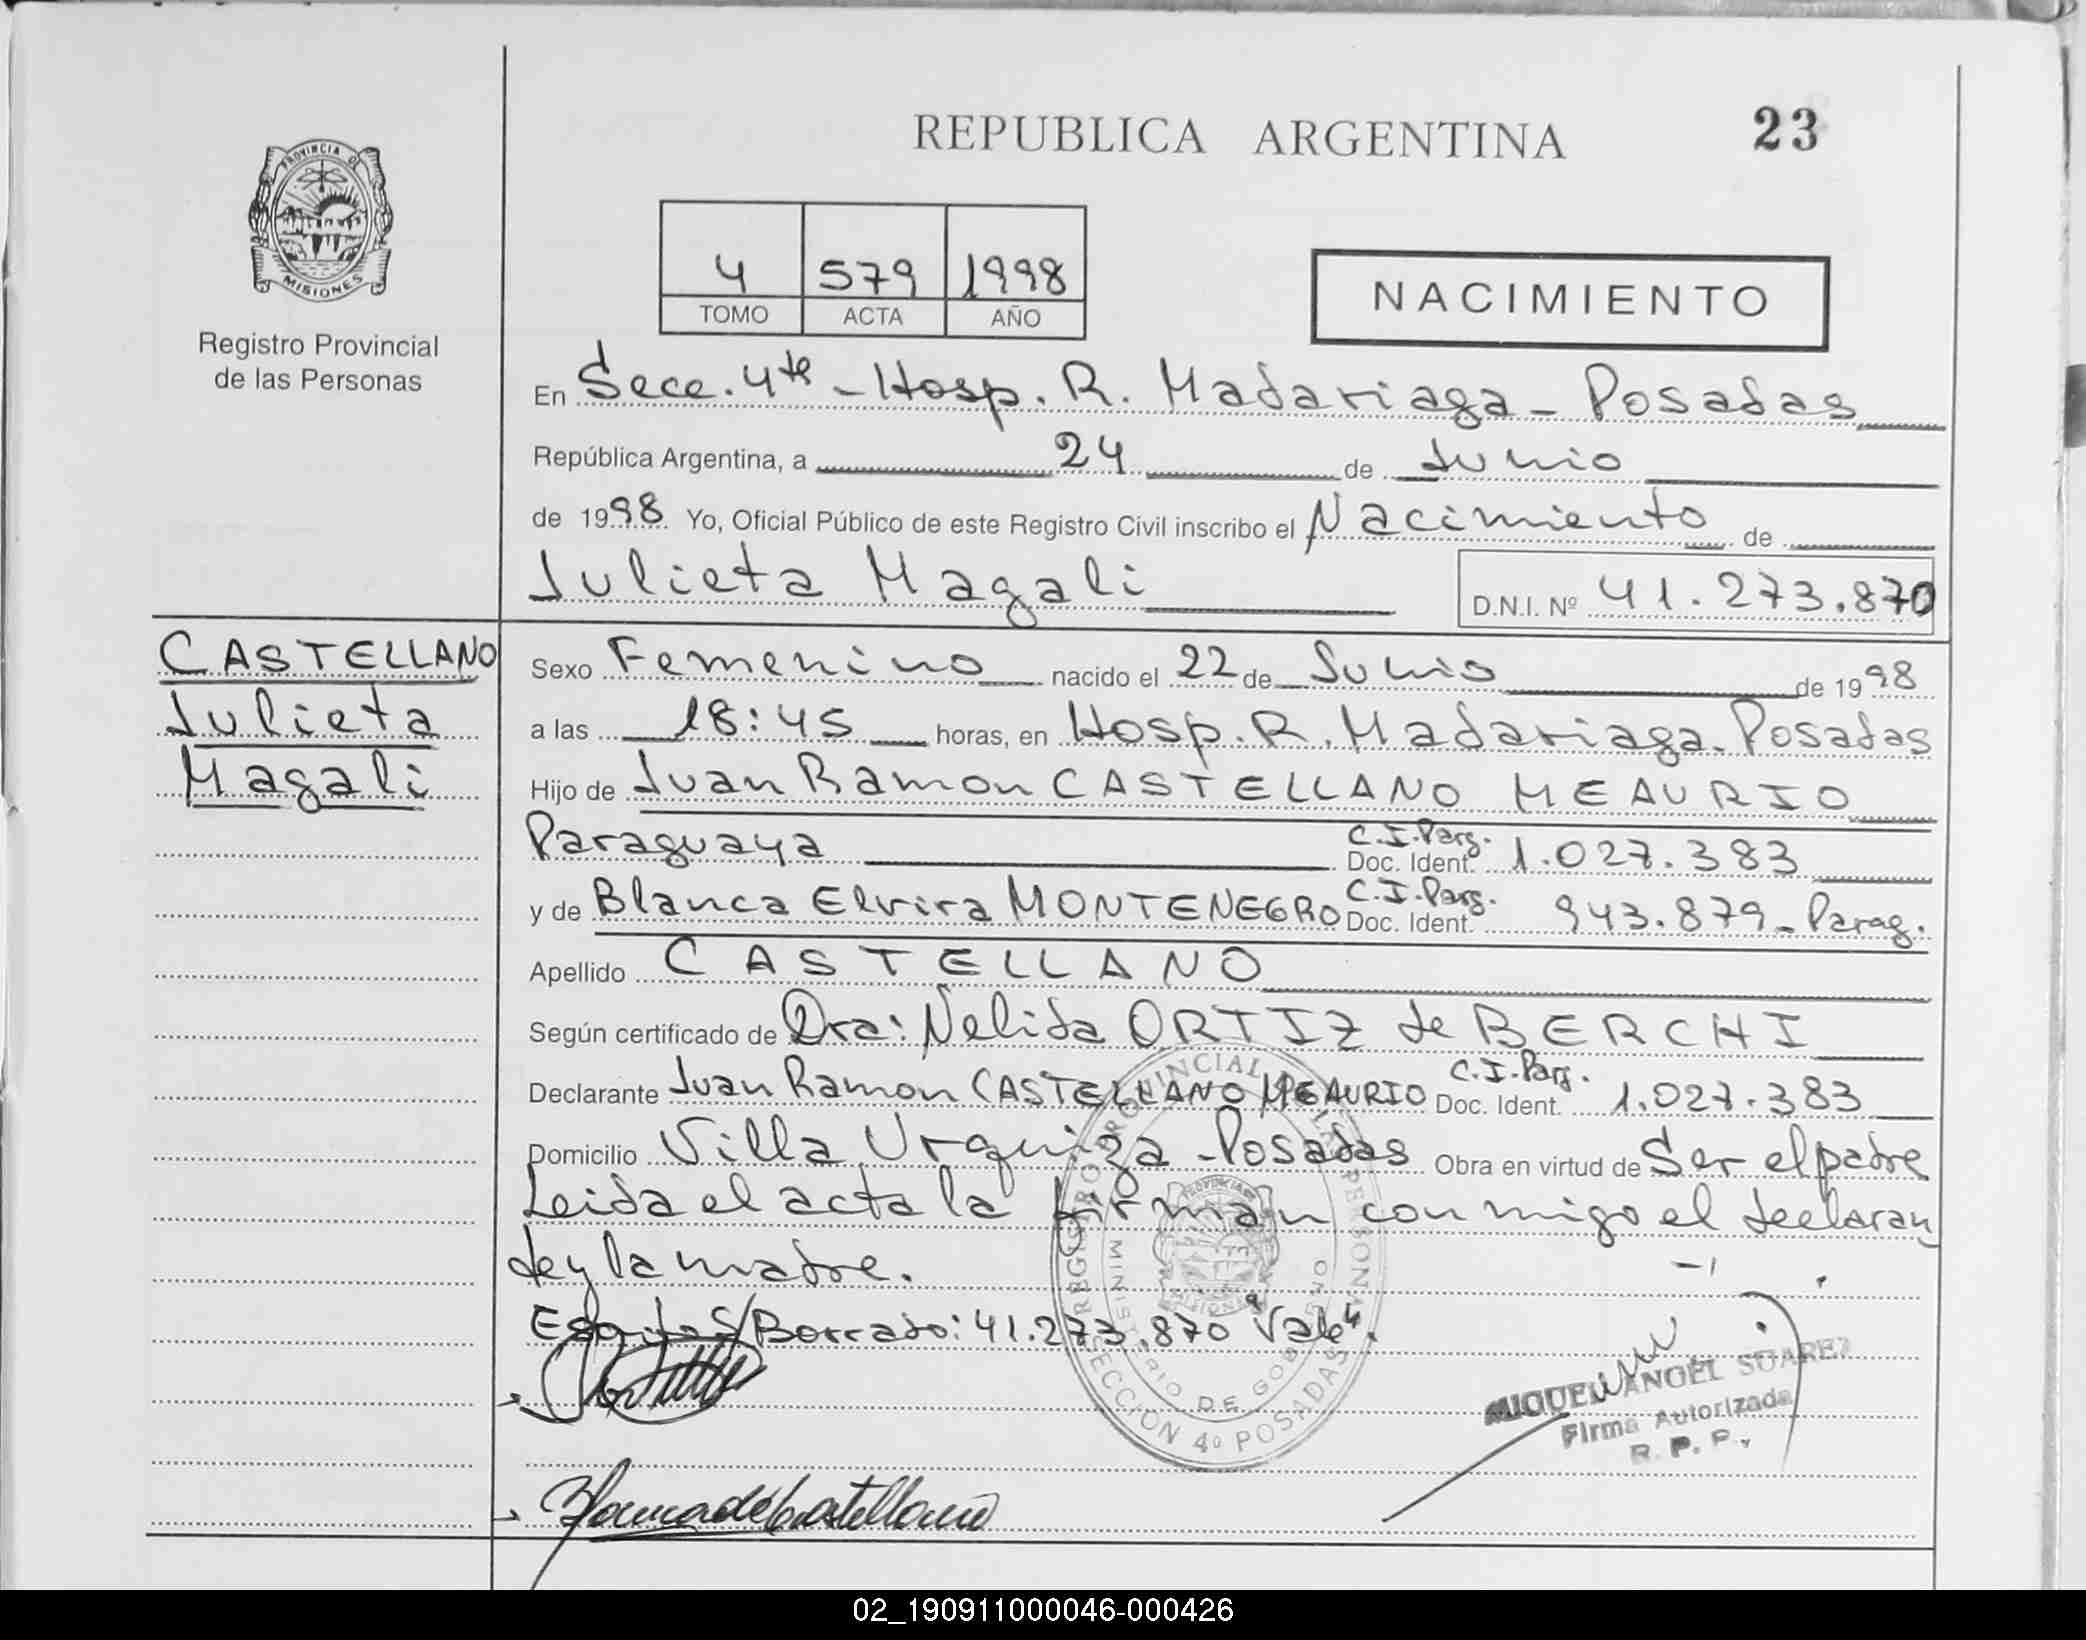 REPUBLICA ARGENTINA 23
PROVINCIA DE
MISIONES
Registro Provincial
de las Personas
4 579 1998
TOMO ACTA AÑO
NACIMIENTO
En Secc. 4ta - Hosp. R. Madariaga - Posadas
República Argentina, a 24 de Junio
de 1998 Yo, Oficial Público de este Registro Civil inscribo el Nacimiento de
Julieta Magali D.N.I. Nº 41.273.870
CASTELLANO
Julieta
Magali
Sexo Femenino nacido el 22 de Junio de 1998
a las 18:45 horas, en Hosp. R. Madariaga - Posadas
Hijo de Juan Ramon CASTELLANO MEAURIO
Paraguaya C.I. Parg. Doc. Ident. 1.027.383
y de Blanca Elvira MONTENEGRO C.I. Parg. Doc. Ident. 943.879 - Parag.
Apellido CASTELLANO
Según certificado de Dra: Nelida ORTIZ de BERCHI
Declarante Juan Ramon CASTELLANO MEAURIO C.I. Parg. Doc. Ident. 1.027.383
Domicilio Villa Urquiza - Posadas Obra en virtud de Ser el padre
Leida el acta la firman conmigo el declaran
te y la madre.
S/Borrado: 41.273.870 "Vale".
REGISTRO PROVINCIAL DE LAS PERSONAS
MINISTERIO DE GOBIERNO
PROVINCIA
MISIONES
SECCION 4º POSADAS
MIGUEL ANGEL SUAREZ
Firma Autorizada
R. P. P.
Blanca de Castellano
02_190911000046-000426